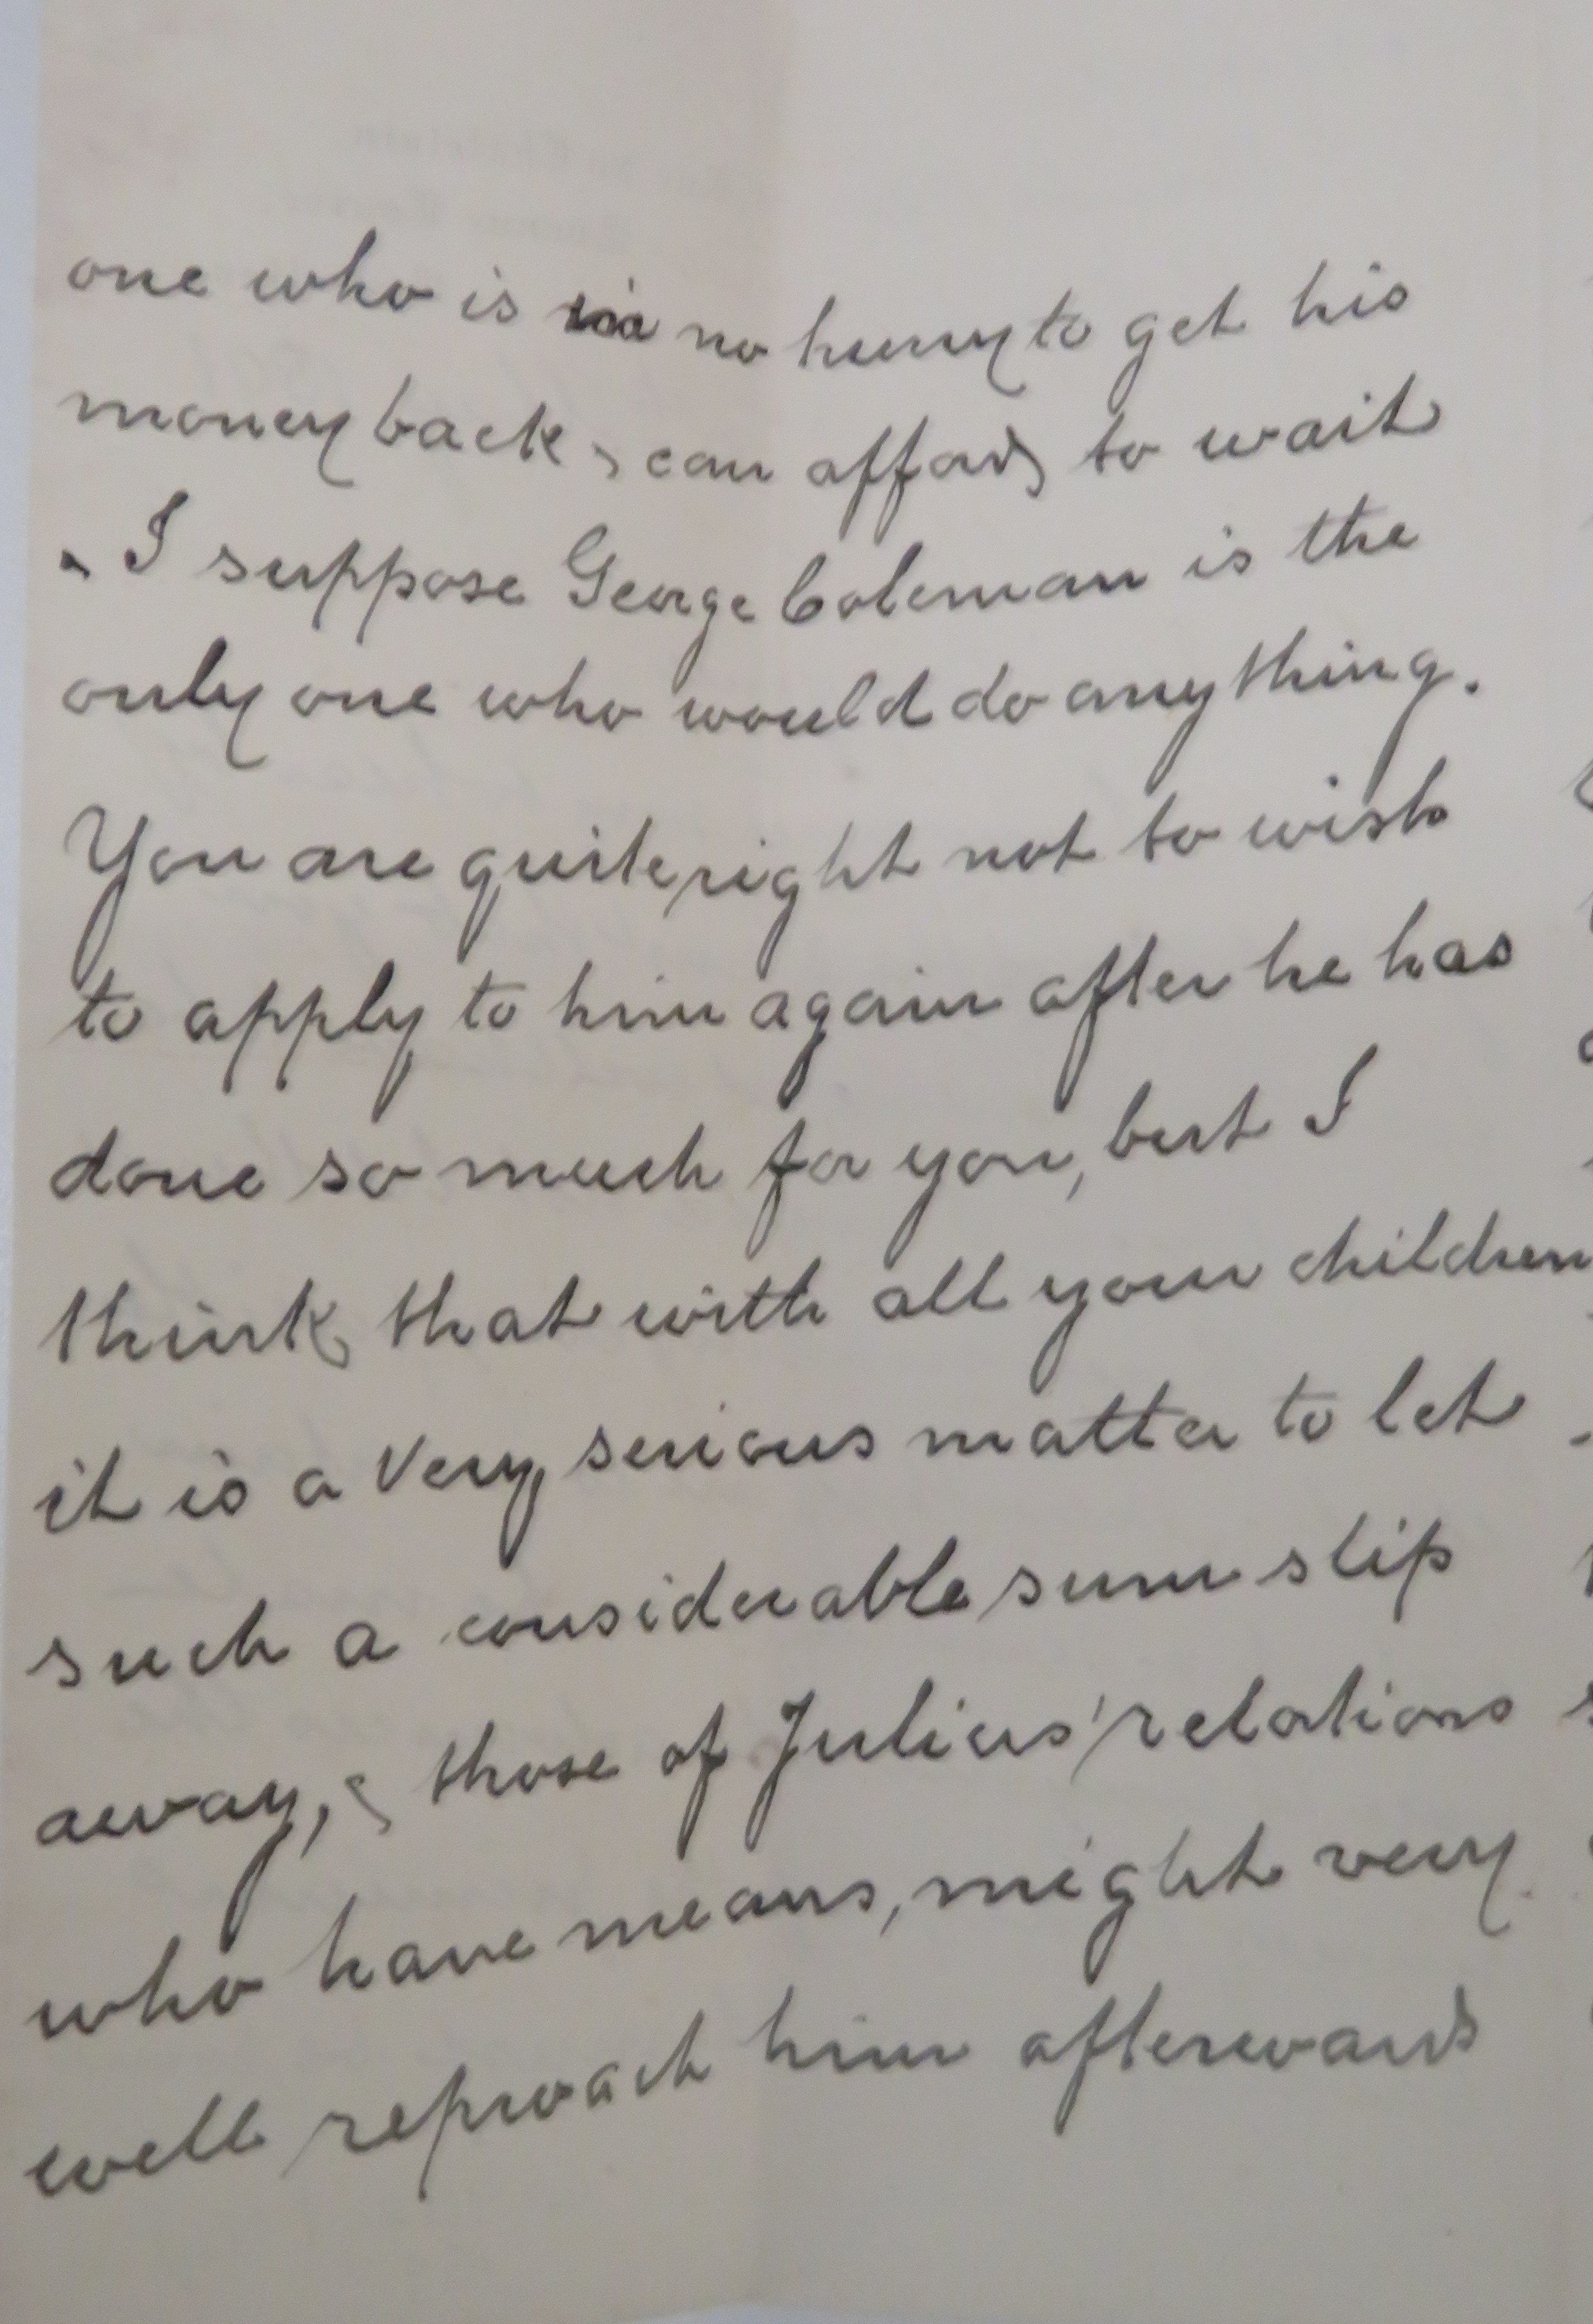 one who is in no hurry to get his
money back & can afford to wait
. I suppose George Coleman is the
only one who would do anything.
You are quite right not to wish
to apply to him again after he has
done so much for you, but I
think that with all your children
it is a very serious matter to let
such a considerable sum slip
away, & those of Julius' relations
who have means, might very
well reproach him afterwards